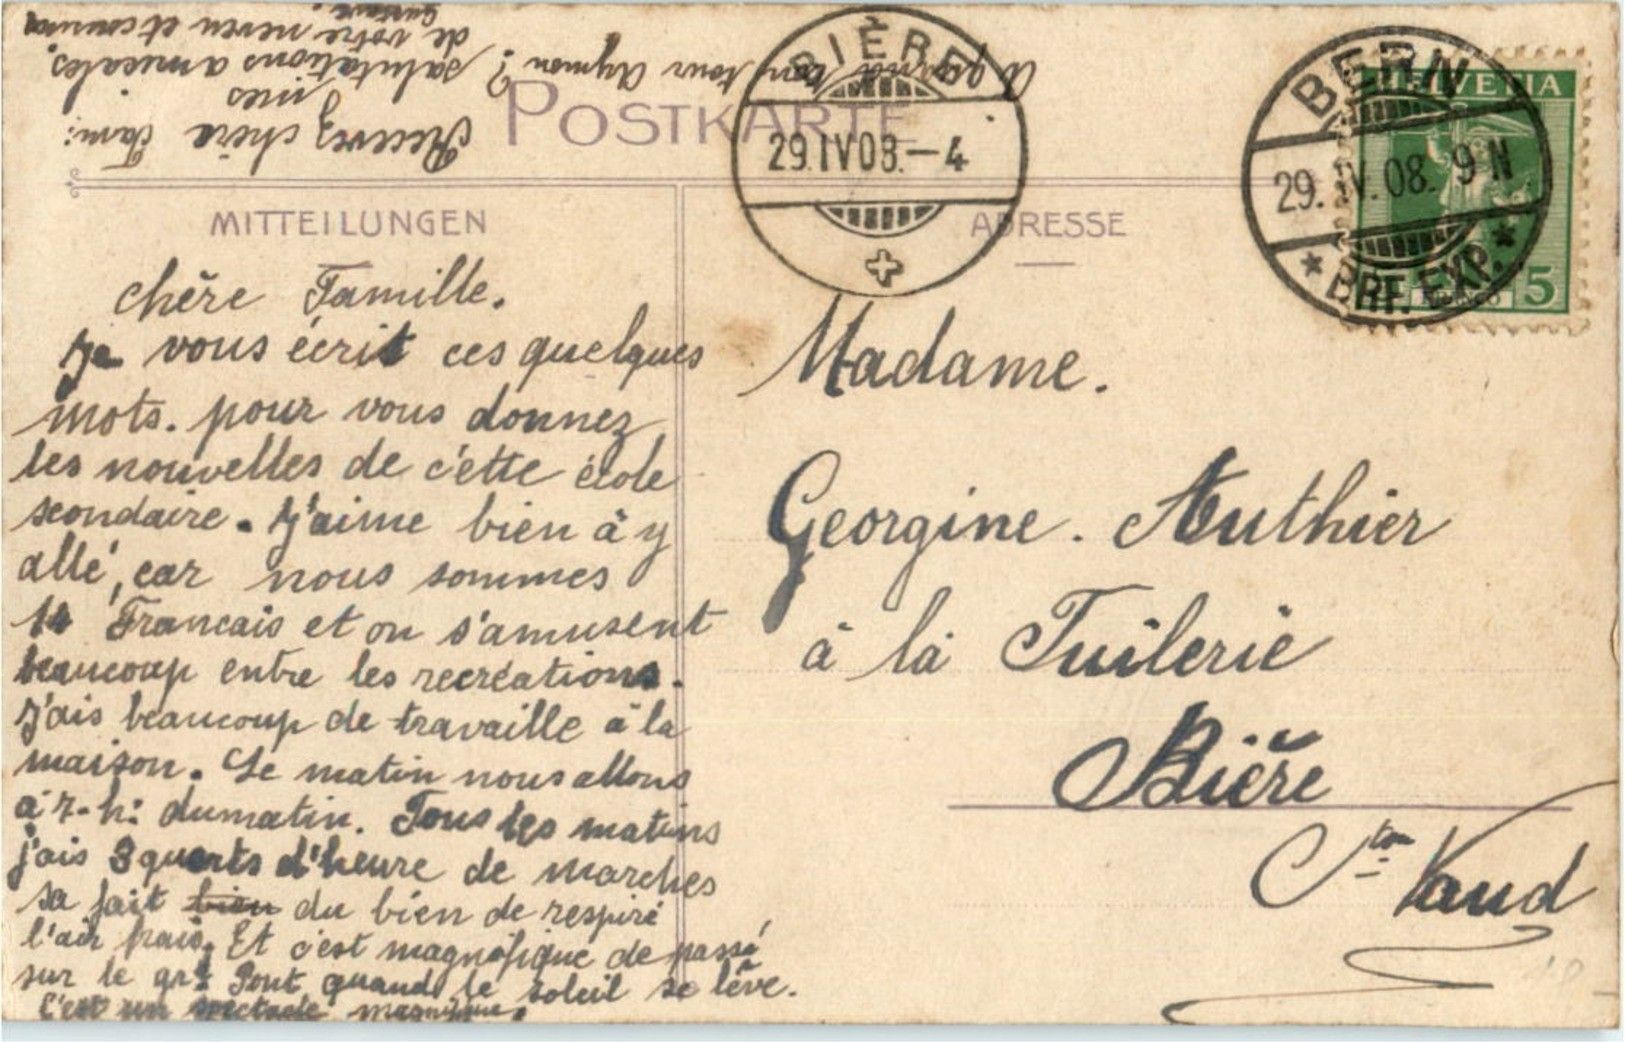 POSTKARTE
MITTEILUNGEN
ADRESSE
BIÈRE
29.IV08.-4
BERN
29.IV.08. 9N
BRF. EXP.
HELVETIA
5
chère Famille.
Je vous écrit ces quelques
mots. pour vous donnez
les nouvelles de c'ette école
scondaire. J'aime bien à y
allé, car nous sommes
14 Francais et on s'amusent
beaucoup entre les recréations.
J'ais beaucoup de travaille à la
maison. Le matin nous allons
à 7-h: dumatin. Tous les matins
j'ais 3 querts d'heure de marches
sa fait bien du bien de respiré
l'air frais. Et c'est magnifique de passé
sur le grd Pont quand le soleil se lève.
C'est un spectacle magnifique.
Recevez chère Fam:
mes
salutations amicales,
de votre neveu et cousin
Gustave.
A quand ton tour Aymon?
Madame.
Georgine. Authier
à la Tuilerie
Bière
Cton Vaud